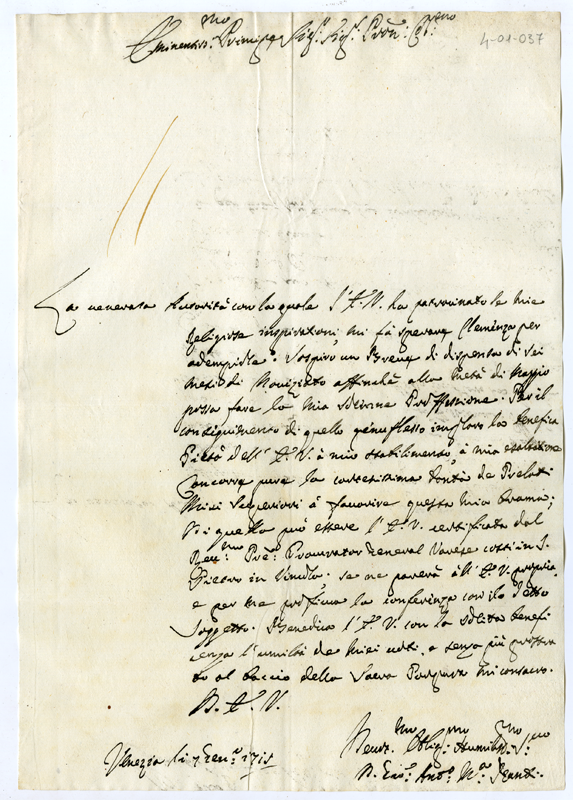 4-01-037
Eminentiss.mo Principe Sig.r Sig.r Pron: Col.mo
La venerata Autorità con la quale l'E.V. ha patrocinato le mie
Religiose inspirationi mi fà sperare Clemenza per
adempirle. Sospiro un Breve di dispensa di sei
mesi di Novizieto affinche alla metà di Maggio
possa fare la mia solenne Proffessione. Per il
conseguimento di quello genuflesso imploro la benefica
Pietà dell'E.V. à mio stabilimento, à mia esaltatione
Concorre pure la cortesissima bontà de Prelati
Miei Superiori à favorire questa mia brama;
Di questo può essere l'E.V. certificata dal
Reu.mo Pre. Procurator General Varese costì in S.
Pietro in Vincola: se ne parerà all'E.V. propria
e per me proficua la conferenza con lo detto
Soggetto. Benedica l'E.V. con la solita benefi
cenza l'humiltà de miei voti, e senza più prostra
to al baccio della Sacra Porpora mi consacro.
D. E. V.
Venezia li 7 Gen.o 1715
Deuot.mo Oblig.mo Humiliss.mo S.re
D. Gio: Ant.o M.a